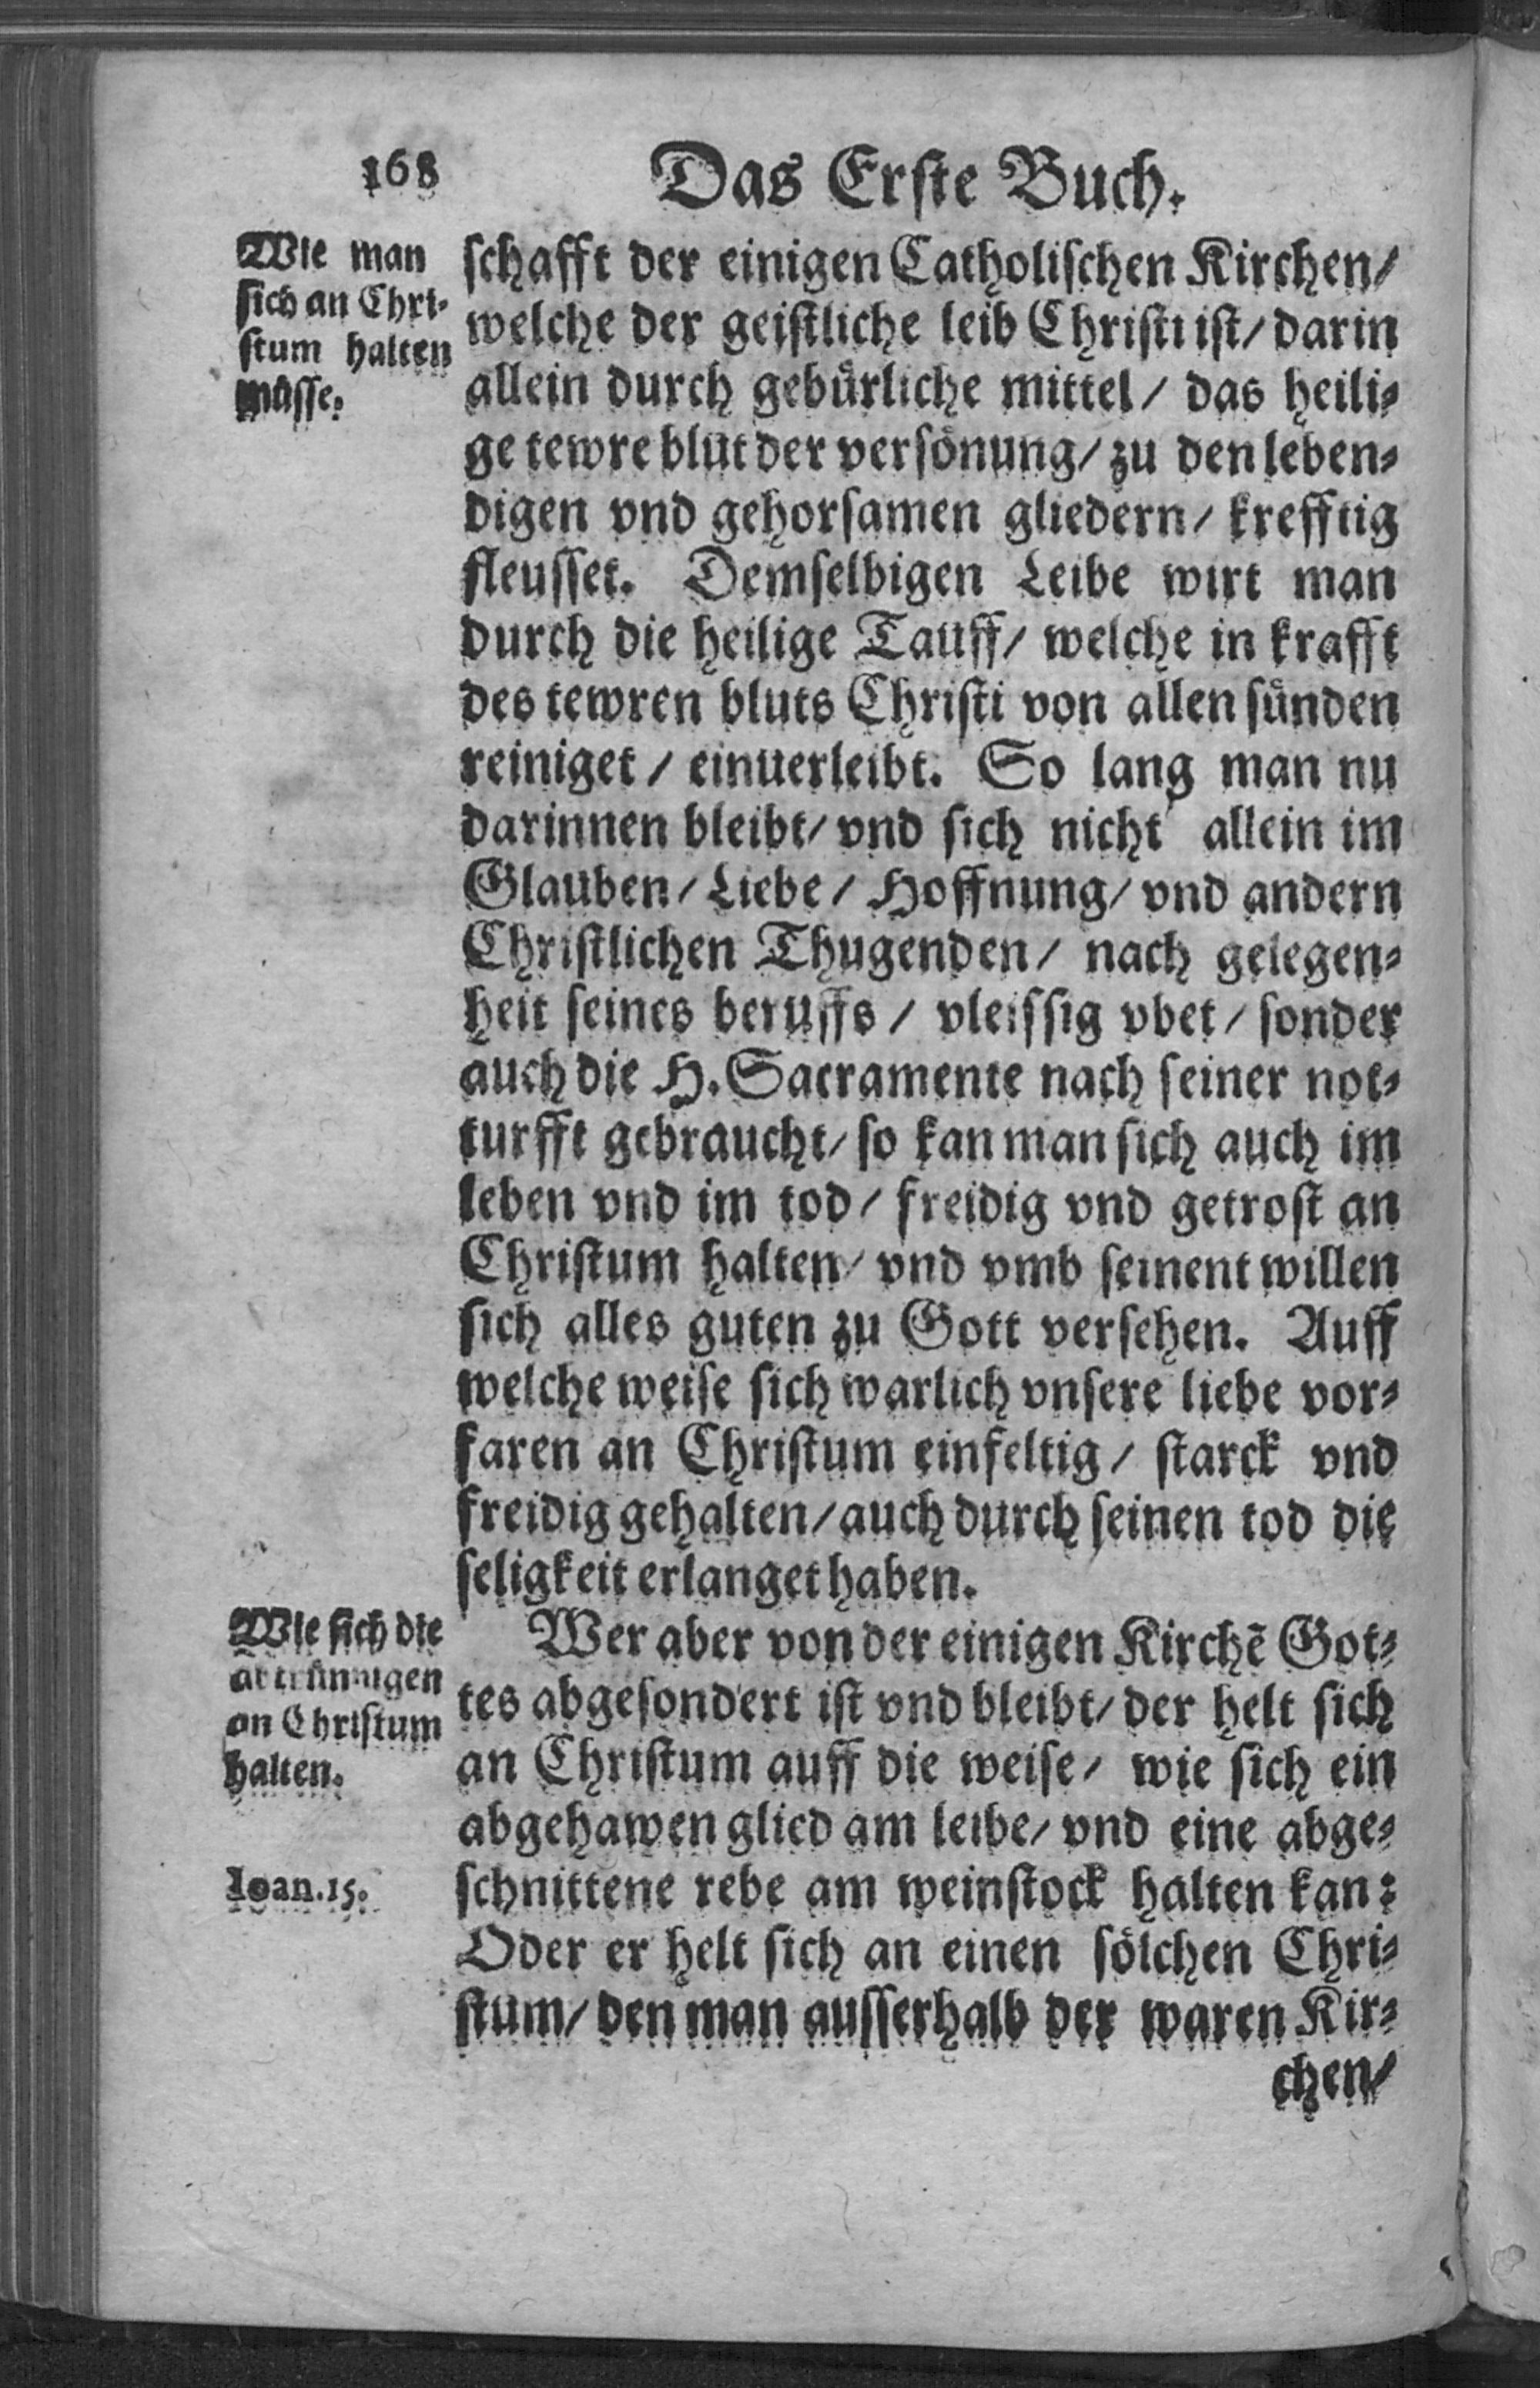 168
Das Erste Buch.
Wie man
sich an Chri-
stum halten
müsse.
schafft der einigen Catholischen Kirchen/
welche der geistliche leib Christi ist/ darin
allein durch gebürliche mittel/ das heili-
ge tewre blut der versönung/ zu den leben-
digen vnd gehorsamen gliedern/ krefftig
fleusset. Demselbigen Leibe wirt man
durch die heilige Tauff/ welche in krafft
des tewren bluts Christi von allen sünden
reiniget/ einuerleibt. So lang man nu
darinnen bleibt/ vnd sich nicht allein im
Glauben/ Liebe/ Hoffnung/ vnd andern
Christlichen Thugenden/ nach gelegen-
heit seines beruffs/ vleissig vbet/ sonder
auch die H. Sacramente nach seiner not-
turfft gebraucht/ so kan man sich auch im
leben vnd im tod/ freidig vnd getrost an
Christum halten/ vnd vmb seinent willen
sich alles guten zu Gott versehen. Auff
welche weise sich warlich vnsere liebe vor-
faren an Christum einfeltig/ starck vnd
freidig gehalten/ auch durch seinen tod die
seligkeit erlanget haben.
Wie sich die
abtrünnigen
an Christum
halten.
Wer aber von der einigen Kirchē Got-
tes abgesondert ist vnd bleibt/ der helt sich
an Christum auff die weise/ wie sich ein
abgehawen glied am leibe/ vnd eine abge-
Ioan. 15.
schnittene rebe am weinstock halten kan:
Oder er helt sich an einen sölchen Chri-
stum/ den man ausserhalb der waren Kir-
chen/